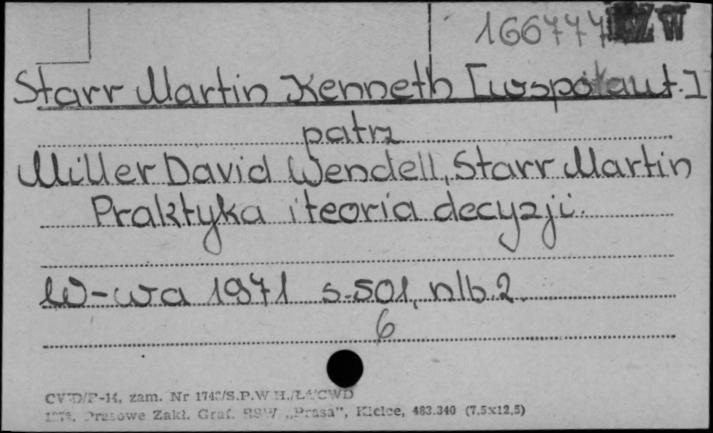 166777 ZW
Starr Martin Kenneth [współaut.]
patrz
Miller David Wendell, Starr Martin
Praktyka i teoria decyzji.
W-wa 1971 s.501, nlb.2.
6
zam. Nr S.P.W
Prasowe Zakł. Graf. RSW „Prasa”, Kielce, 483.340 (7,5x12,5)